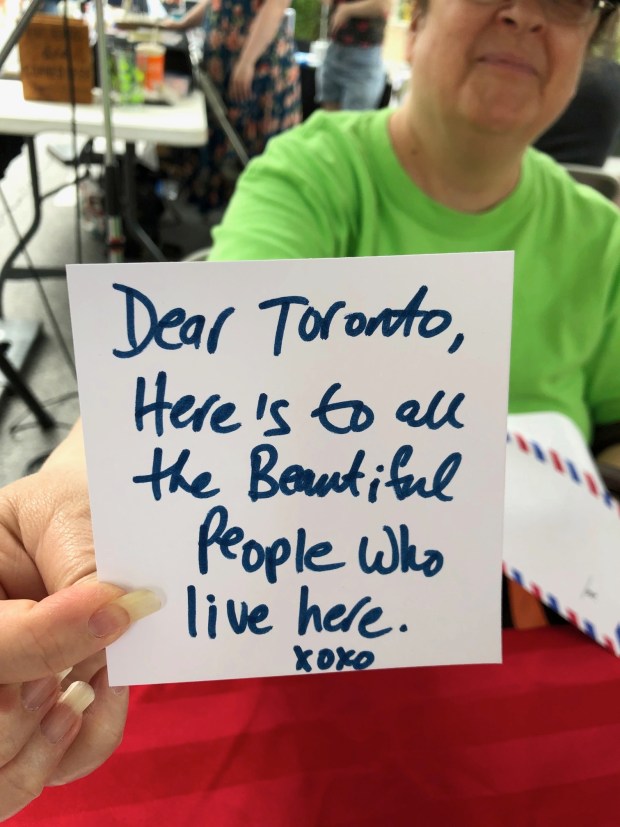 Dear Toronto,
Here's to all
the Beautiful
People Who
live here.
xoxo